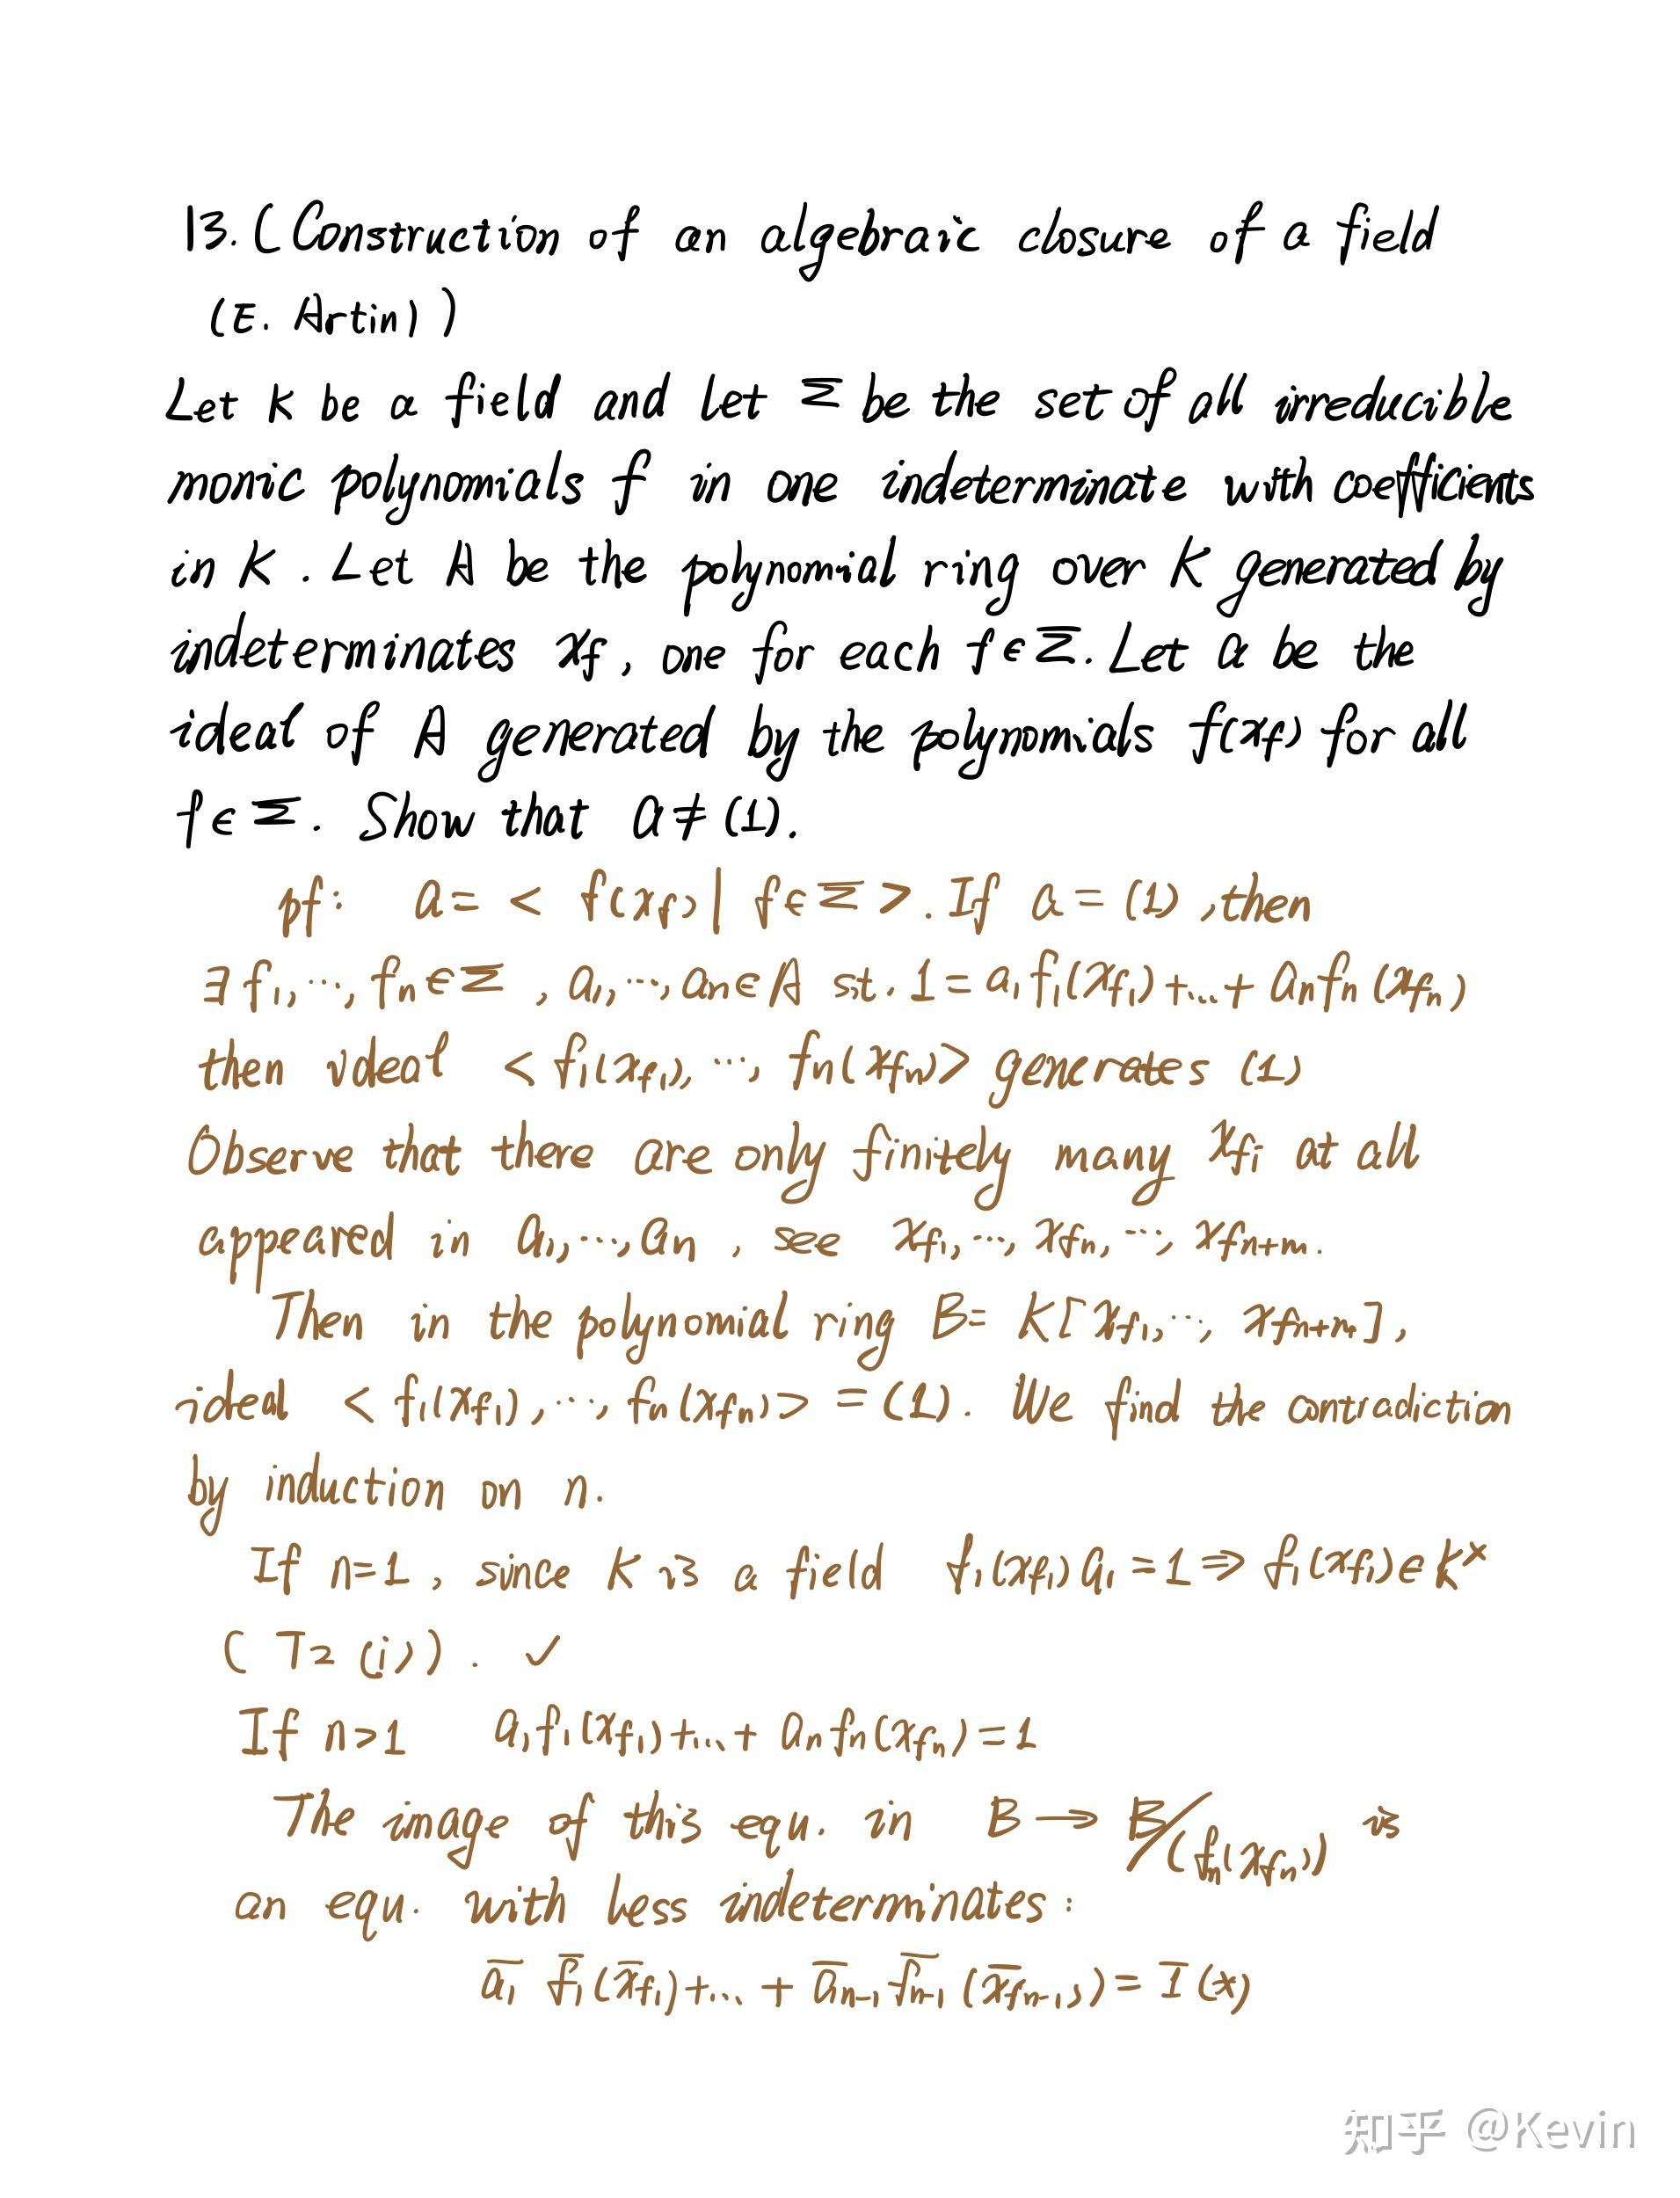 13. (Construction of an algebraic closure of a field
(E. Artin))
Let K be a field and let Σ be the set of all irreducible
monic polynomials f in one indeterminate with coefficients
in K. Let A be the polynomial ring over K generated by
indeterminates x_f, one for each f∈Σ. Let a be the
ideal of A generated by the polynomials f(x_f) for all
f∈Σ. Show that a≠(1).
pf: a = < f(x_f) | f∈Σ >. If a = (1), then
∃ f₁,⋯, fₙ∈Σ, a₁,⋯,aₙ∈A s.t. 1 = a₁f₁(x_f₁)+...+ aₙfₙ(x_fₙ)
then ideal < f₁(x_f₁), ⋯, fₙ(x_fₙ)> generates (1)
Observe that there are only finitely many x_fᵢ at all
appeared in a₁,⋯,aₙ, see x_f₁,⋯, x_fₙ,⋯, x_fₙ₊ₘ.
Then in the polynomial ring B= K[x_f₁,⋯, x_fₙ₊ₘ],
ideal < f₁(x_f₁),⋯, fₙ(x_fₙ)> = (1). We find the contradiction
by induction on n.
If n=1, since K is a field f₁(x_f₁)a₁=1 ⇒ f₁(x_f₁)∈K^×
(T2 (i)). ✓
If n>1 a₁f₁(x_f₁)+...+ aₙfₙ(x_fₙ)=1
The image of this equ. in B → B/(fₙ(x_fₙ)) is
an equ. with less indeterminates:
a̅₁ f̅₁(x̅_f₁)+...+ a̅ₙ₋₁f̅ₙ₋₁(x̅_fₙ₋₁,)= 1̅ (x)
知乎 @Kevin